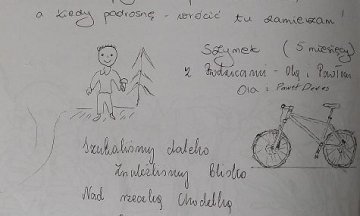 a kiedy podrosnę - wrócić tu zamierzam!
Szymek (5 miesięcy)
z Rodzicami - Olą i Pawłem
Ola i Paweł
Szukaliśmy daleko
Znaleźliśmy blisko
Nad rzeczką Chodelką